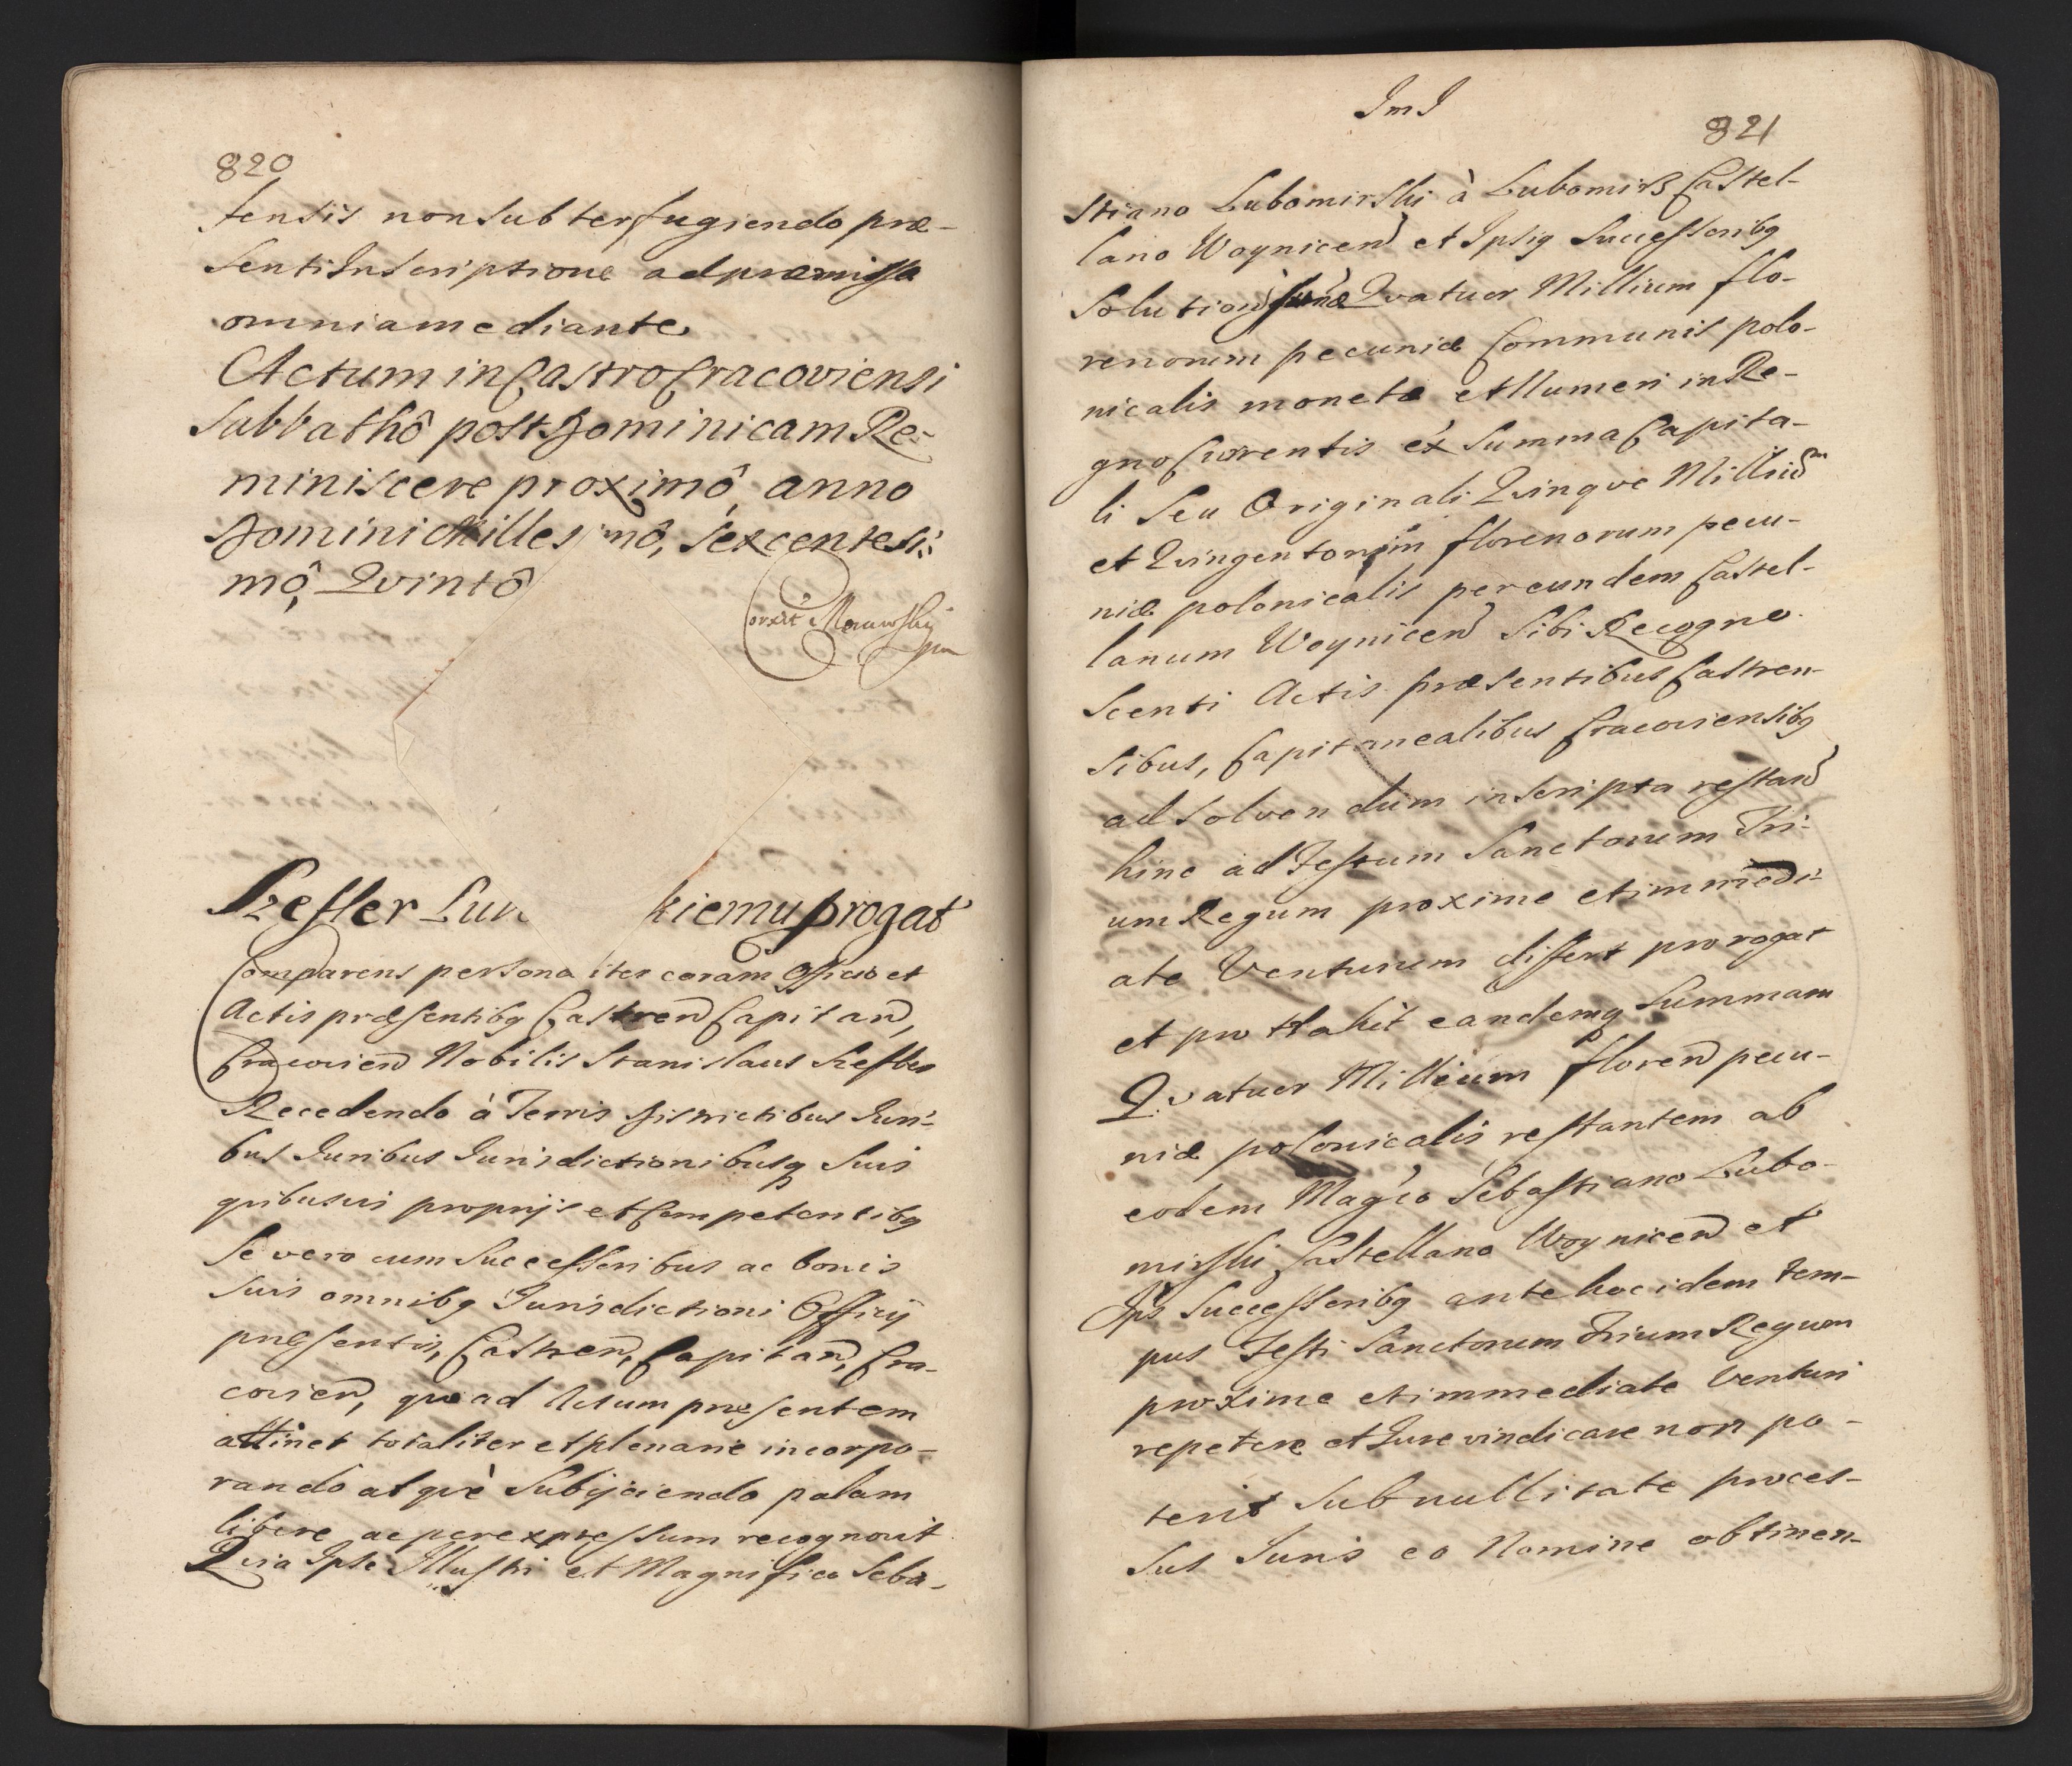 820
tensis non subterfugiendo præ-
senti Inscriptione ad præmissa
omnia mediante
Actum in Castro Cracoviensi
Sabbathô post Dominicam Re-
miniscere proximô, anno
Dominicᵢ Milles mô, sexcentesi:
mô, Qvintô
Corxit
Szesler Lu kiemu progat
Comparens persona iter coram Officio et
Actis præsentibg Castren Capitan,
Cracovien Nobilis Stanislaus Szesler
Recedendo à Terris Districtibus Iuri-
bus Iuribus Iurisdictionibusq suis
qvibusvis proprijs et Competentibg
se vero cum Successoribus ac bonis
suis omnibg Iurisdictioni Officij
præsentis, Castren, Capitan, Cra-
covien, quo ad Actum præsentem
attinet totaliter et plenarie incorpo-
rando atqvè Subijciendo palam
libere ac per expressum recognovit
Qvia Ipse Illustri et Magnifico Seba-
JmJ
821
stiano Lubomirski à Lubomirz Castel-
lano Woynicen et Ipsig Successoribg
Solution Sumæ Qvatuor Millium flo-
renorum pecuniæ Communis polo-
nicalis monetæ et Numeri in Re-
gno Currentis ex Summa Capita-
li seu Originali Qvinqve Milliu
et Qvingentorum florenorum pecu-
niæ polonicalis per eundem Castel-
lanum Woynicen Sibi Recogno-
scenti Actis præsentibus Castren-
sibus, Capitanealibus Cracoviensibg
ad solvendum inscripta restan
hinc ad Festum Sanctorum Tri-
um Regum proxime et immedi-
ate Venturum differt prorogat
et prottahit eandemq Summam
Qvatuor Millium floren pecu-
niæ polonicalis restantem ab
eodem Mag'co Sebastiano Lubo-
mirski Castellano Woynicen et
Ips Successoribg ante hoc idem tem-
pus Festi Sanctorum Trium Regum
proxime et immediate Venturi
repetere et Iure vindicare non po-
terit Sub nullitate proces-
sus Iuris eo Nomine obtinen-